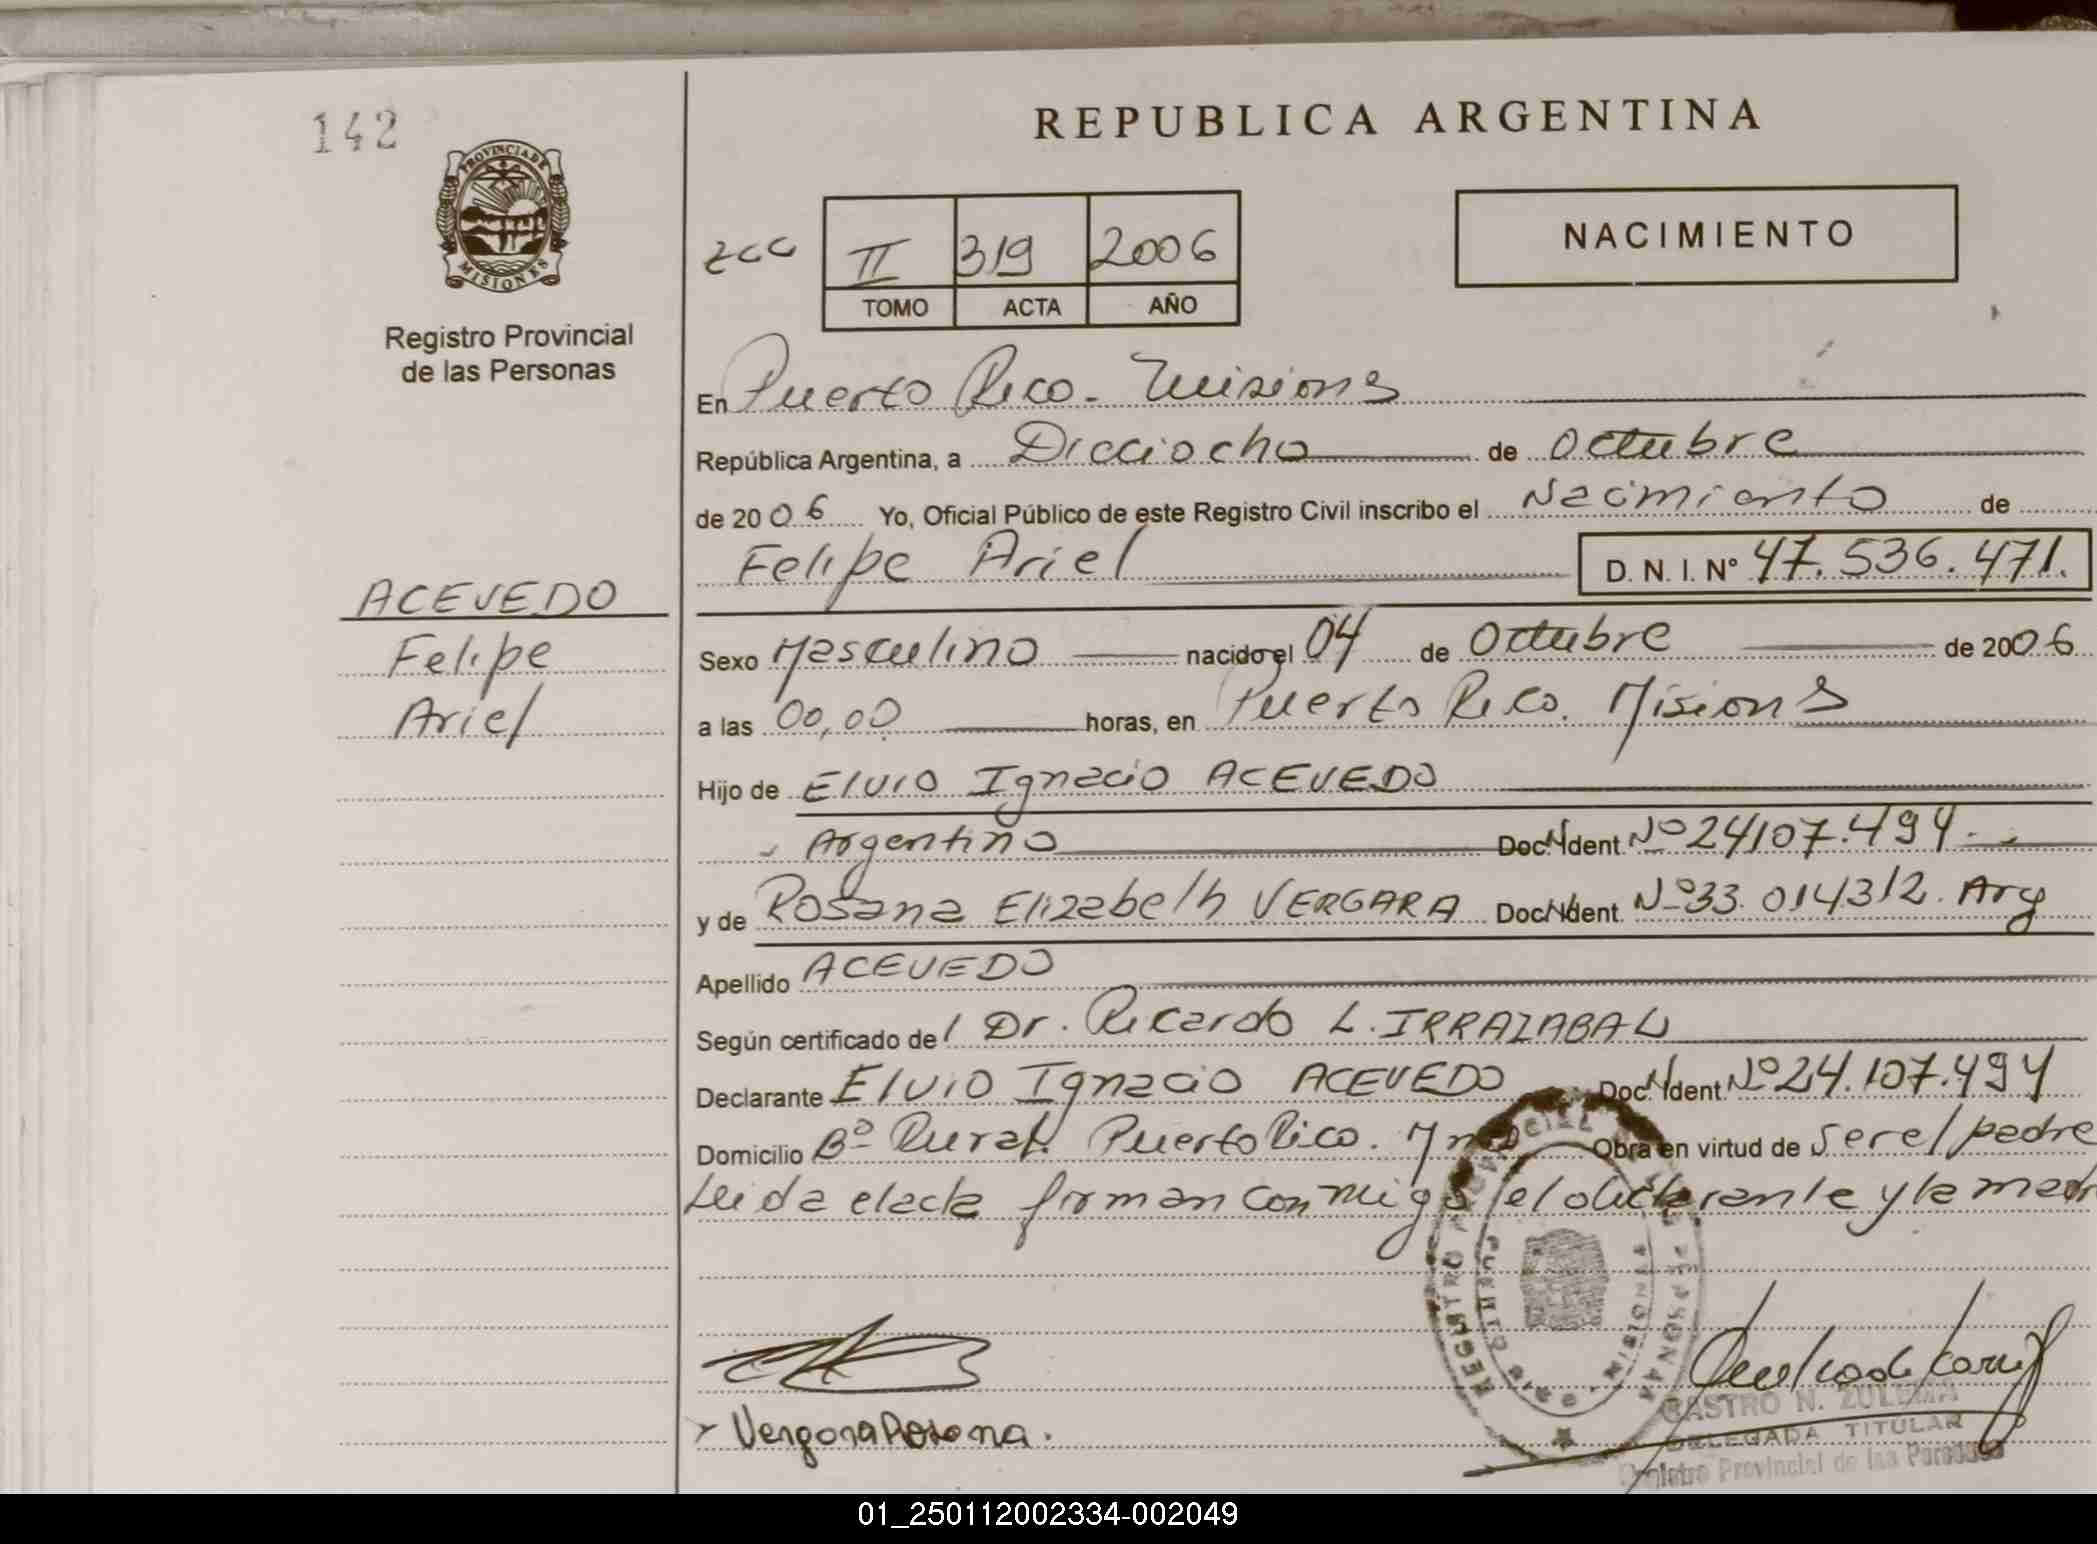 142
PROVINCIA DE
MISIONES
Registro Provincial
de las Personas
REPUBLICA ARGENTINA
II 319 2006
TOMO ACTA AÑO
NACIMIENTO
En Puerto Rico. Misiones
República Argentina, a Dieciocho de Octubre
de 2006 Yo, Oficial Público de este Registro Civil inscribo el Nacimiento de
Felipe Ariel D. N. I. Nº 47.536.471.
ACEVEDO
Felipe
Ariel
Sexo Masculino nacido el 04 de Octubre de 2006
a las 00,00 horas, en Puerto Rico. Misiones
Hijo de Elvio Ignacio ACEVEDO
Argentino Doc. Ident Nº 24107.494.
y de Rosana Elizabeth VERGARA Doc. Ident Nº 33.014312. Arg
Apellido ACEVEDO
Según certificado del Dr. Ricardo L. IRRAZABAL
Declarante Elvio Ignacio ACEVEDO Doc. Ident Nº 24.107.494
Domicilio Bº Rural. Puerto Rico. Obra en virtud de ser el padre
Leida el acta firman conmigo el declarante y la madr
REGISTRO PROVINCIAL DE LAS PERSONAS
PUERTO RICO MISIONES
Vergara Rosana.
CASTRO N. ZULEMA
DELEGADA TITULAR
Registro Provincial de las Personas
01_250112002334-002049